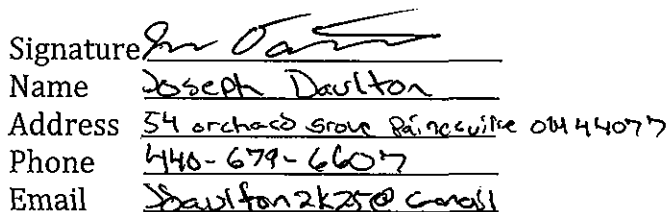 Signature
Name Joseph Daulton
Address 54 orchard Grove Painesville OH 44077
Phone 440-679-6607
Email JDaulton2k25@Gmail